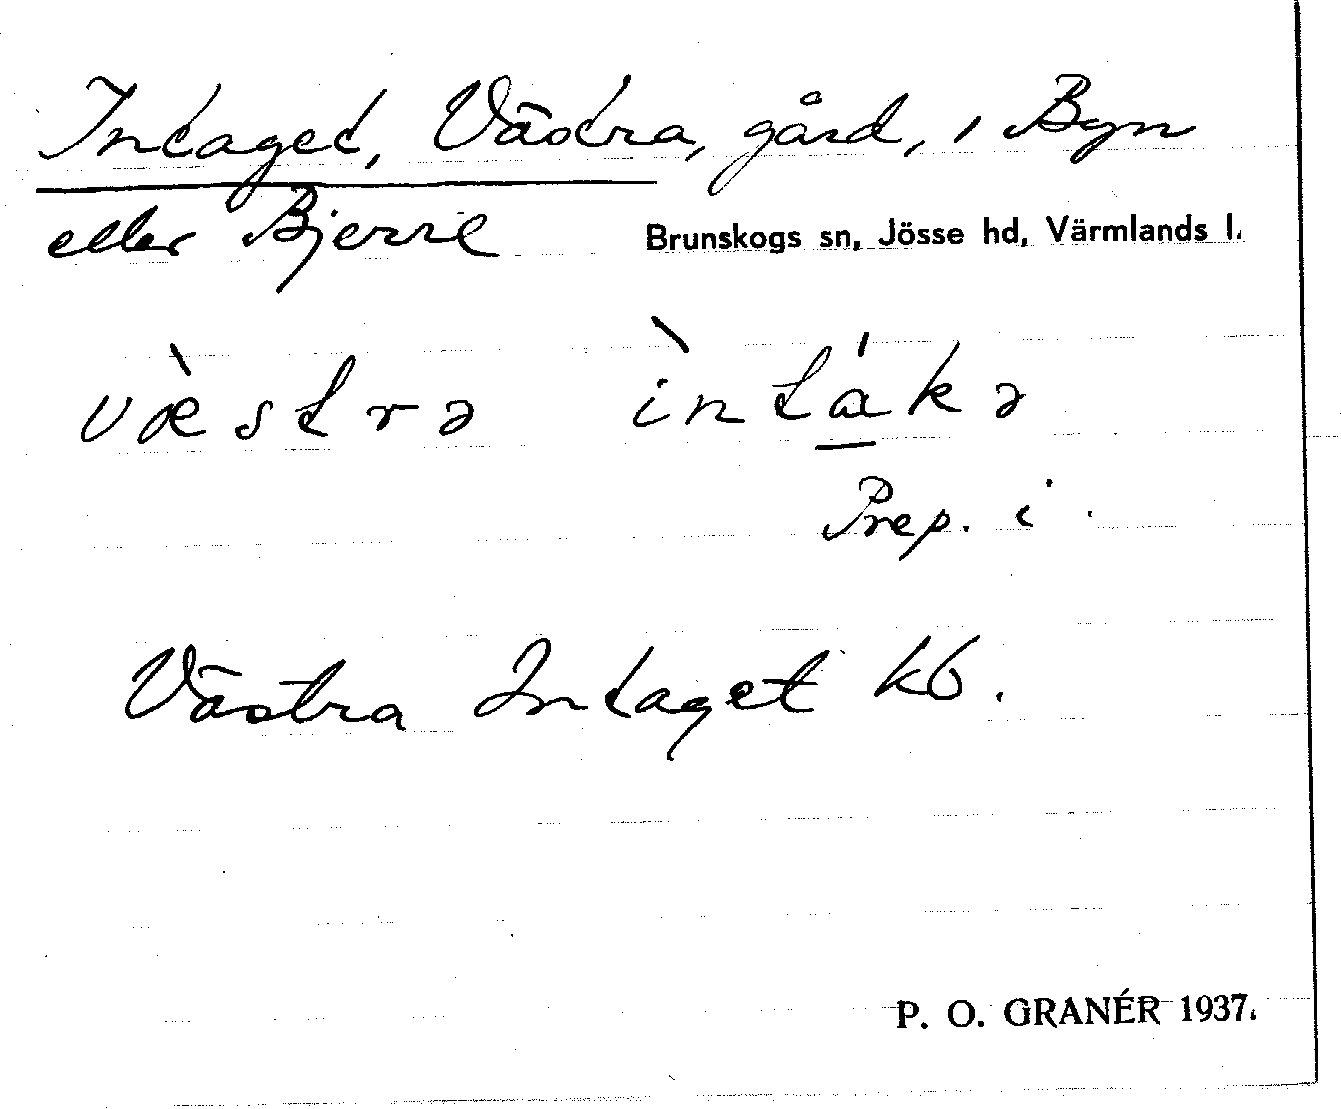 Intaget, Västra, gård, i Byn
eller Bjerre
Brunskogs sn, Jösse hd, Värmlands l.
væ̀strə ìntákə
Prep. i.
Västra Intaget kb.
P. O. GRANÉR 1937.